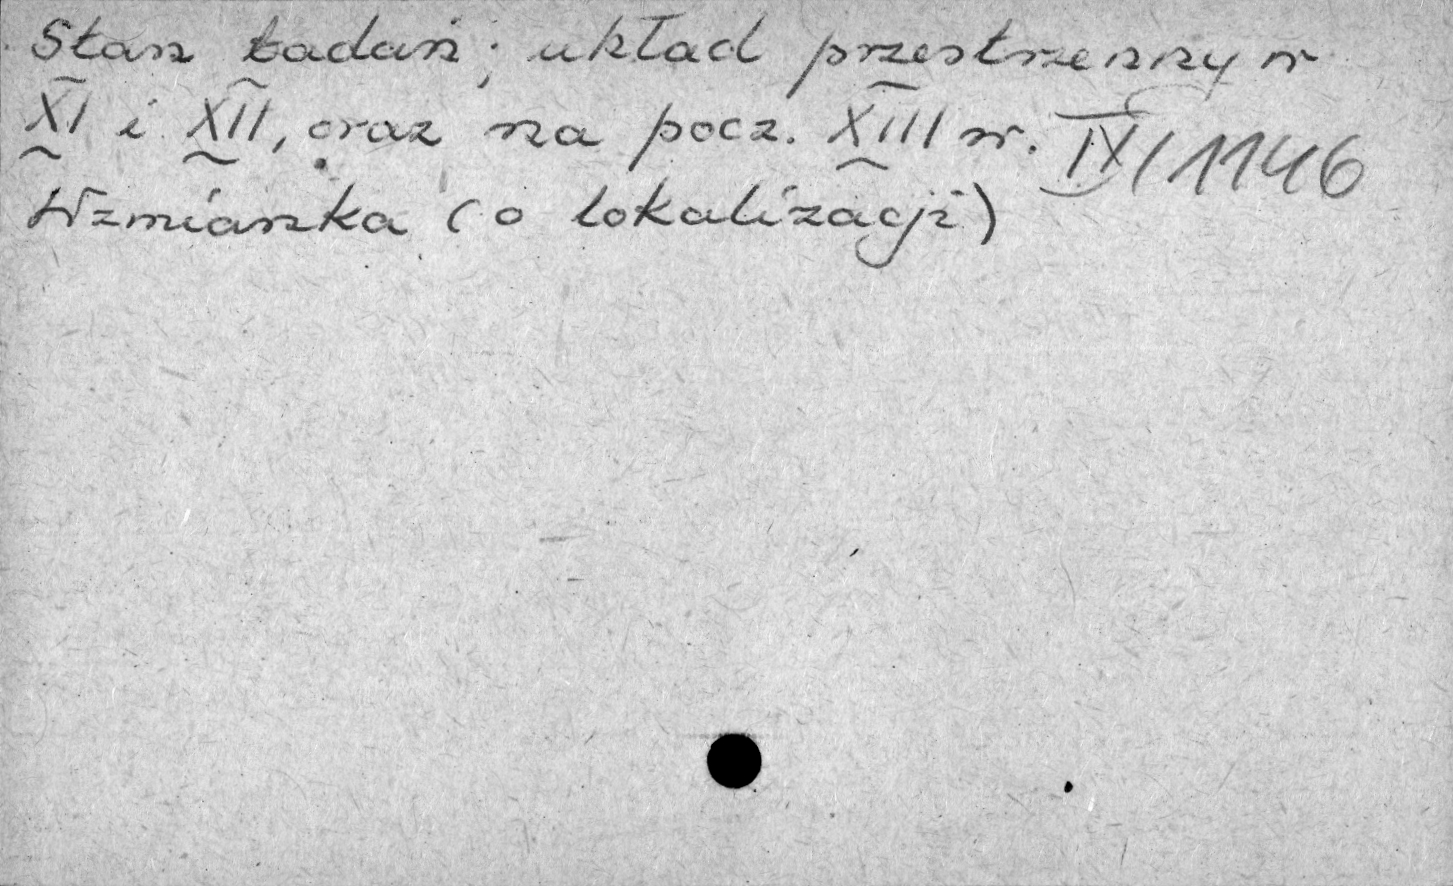 Stan badań; układ przestrzenny w
XI i XII, oraz na pocz. XIII w. IX/1146
Wzmianka (o lokalizacji)